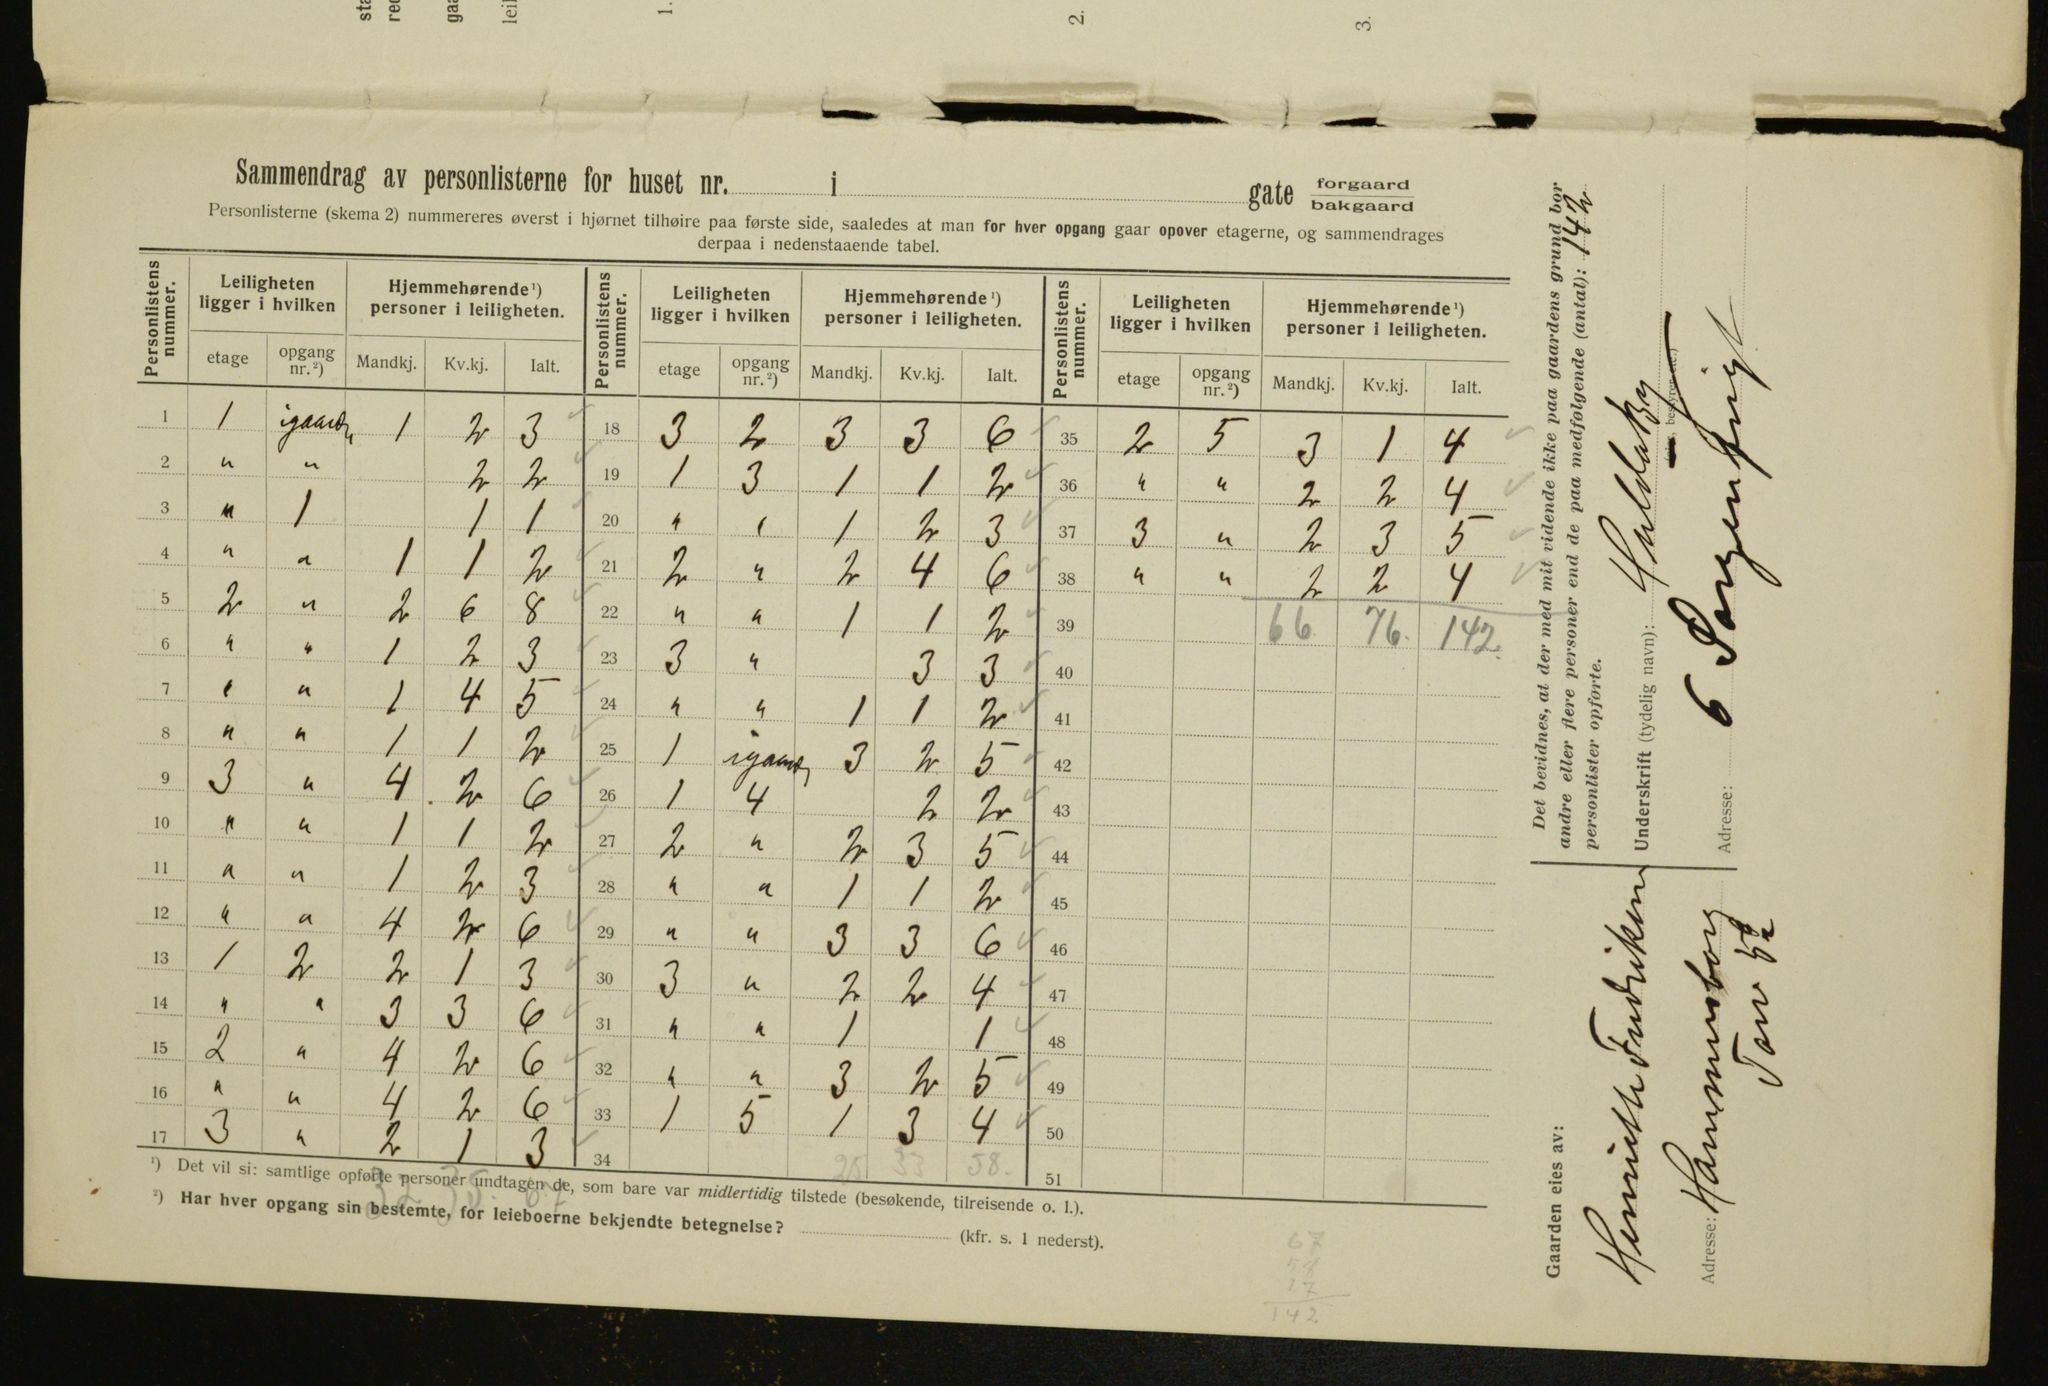 sta
red
gaa
leil
1.
2.
3.
Sammendrag av personlisterne for huset nr. i gate forgaard bakgaard
Personlisterne (skema 2) nummereres øverst i hjørnet tilhøire paa første side, saaledes at man for hver opgang gaar opover etagerne, og sammendrages
derpaa i nedenstaaende tabel.
Personlistens nummer. Leiligheten ligger i hvilken Hjemmehørende ¹) personer i leiligheten. Personlistens nummer. Leiligheten ligger i hvilken Hjemmehørende ¹) personer i leiligheten. Personlistens nummer. Leiligheten ligger i hvilken Hjemmehørende ¹) personer i leiligheten.
etage opgang nr. ²) Mandkj. Kv.kj. Ialt. etage opgang nr. ²) Mandkj. Kv.kj. Ialt. etage opgang nr. ²) Mandkj. Kv.kj. Ialt.
1 1 igaarden 1 2 3 18 3 2 3 3 6 35 2 5 3 1 4
2 " " 2 2 19 1 3 1 1 2 36 " " 2 2 4
3 " 1 1 1 20 " " 1 2 3 37 3 " 2 3 5
4 " " 1 1 2 21 2 " 2 4 6 38 " " 2 2 4
5 2 " 2 6 8 22 " " 1 1 2 39 66. 76. 142.
6 " " 1 2 3 23 3 " 3 3 40
7 " " 1 4 5 24 " " 1 1 2 41
8 " " 1 1 2 25 1 igaarden 3 2 5 42
9 3 " 4 2 6 26 1 4 2 2 43
10 " " 1 1 2 27 2 " 2 3 5 44
11 " " 1 2 3 28 " " 1 1 2 45
12 " " 4 2 6 29 " " 3 3 6 46
13 1 2 2 1 3 30 3 " 2 2 4 47
14 " " 3 3 6 31 " " 1 1 48
15 2 " 4 2 6 32 " " 3 2 5 49
16 " " 4 2 6 33 1 5 1 3 4 50
17 3 " 2 1 3 34 25 33 58. 51
¹) Det vil si: samtlige opførte personer undtagen de, som bare var midlertidig tilstede (besøkende, tilreisende o. l.).
32 35. 67
²) Har hver opgang sin bestemte, for leieboerne bekjendte betegnelse? (kfr. s. 1 nederst).
67
58
17
142
Det bevidnes, at der med mit vidende ikke paa gaardens grund bor
andre eller flere personer end de paa medfølgende (antal): 142
personlister opførte.
Underskrift (tydelig navn):
Adresse: 6
Gaarden eies av:
Adresse: